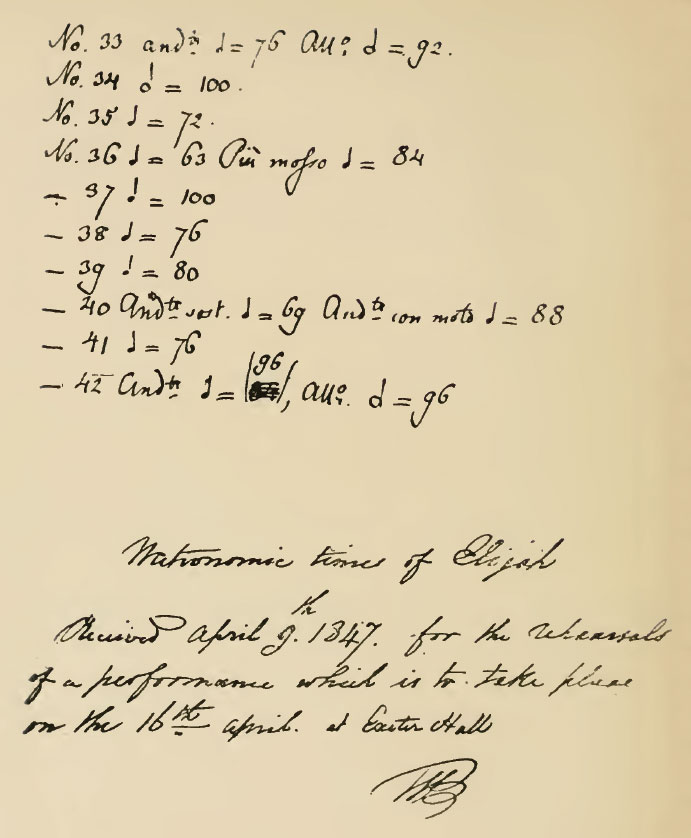 No. 33 andte ♩ = 76 All.o 𝅗𝅥 = 92.
No. 34 𝅗𝅥 = 100.
No. 35 ♩ = 72.
No. 36 ♩ = 63 Più mosso ♩ = 84
— 37 ♩ = 100
— 38 ♩ = 76
— 39 ♩ = 80
— 40 Andte sost. ♩ = 69 Andte con moto ♩ = 88
— 41 ♩ = 76
— 42 Andte ♩ = |96|, All.o 𝅗𝅥 = 96
Metronomic times of Elijah
Received April 9.th 1847. for the rehearsals
of a performance which is to take place
on the 16th april. at Exeter Hall